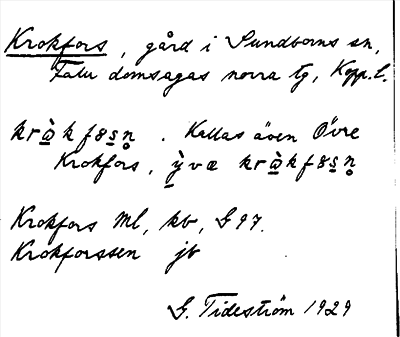 Krokfors, gård i Sundborns sn,
Falu domsagas norra tg, Kopp.l.
kràkfɷsn̥. Kallas även Övre
Krokfors, ỳvæ kràkfɷsn̥
Krokfors Ml, kb, G 97.
Krokforssen jb
G. Tideström 1929